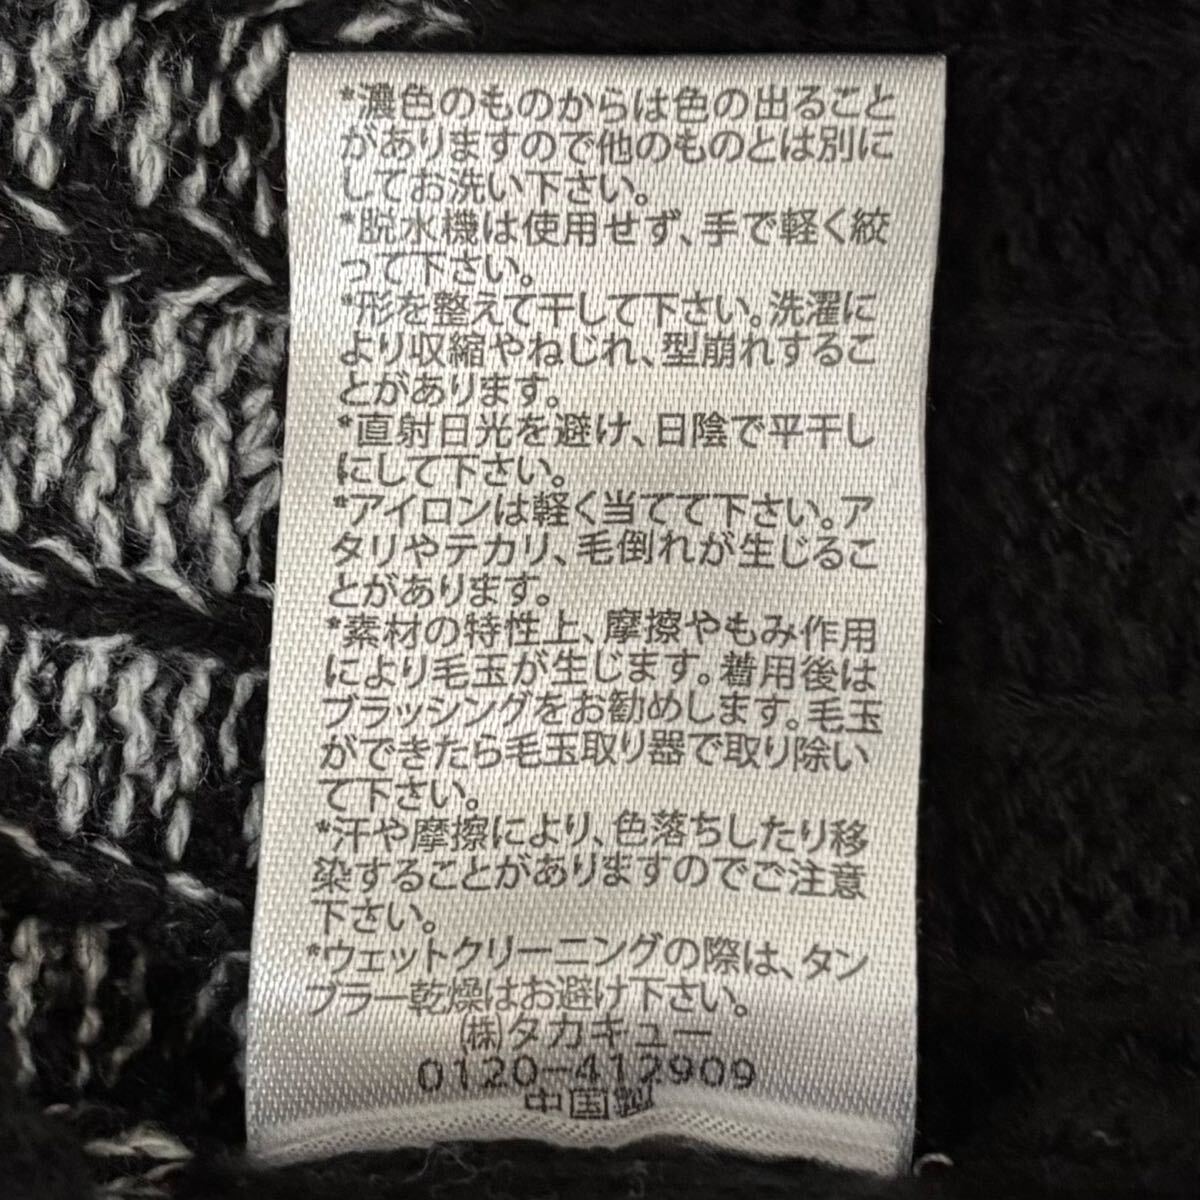 *濃色のものからは色の出ること
がありますので他のものとは別に
してお洗い下さい。
*脱水機は使用せず、手で軽く絞
って下さい。
*形を整えて干して下さい。洗濯に
より収縮やねじれ、型崩れするこ
とがあります。
*直射日光を避け、日陰で平干し
にして下さい。
*アイロンは軽く当てて下さい。ア
タリやテカリ、毛倒れが生じるこ
とがあります。
*素材の特性上、摩擦やもみ作用
により毛玉が生じます。着用後は
ブラッシングをお勧めします。毛玉
ができたら毛玉取り器で取り除い
て下さい。
*汗や摩擦により、色落ちしたり移
染することがありますのでご注意
下さい。
*ウェットクリーニングの際は、タン
ブラー乾燥はお避け下さい。
㈱タカキュー
0120-412909
中国製